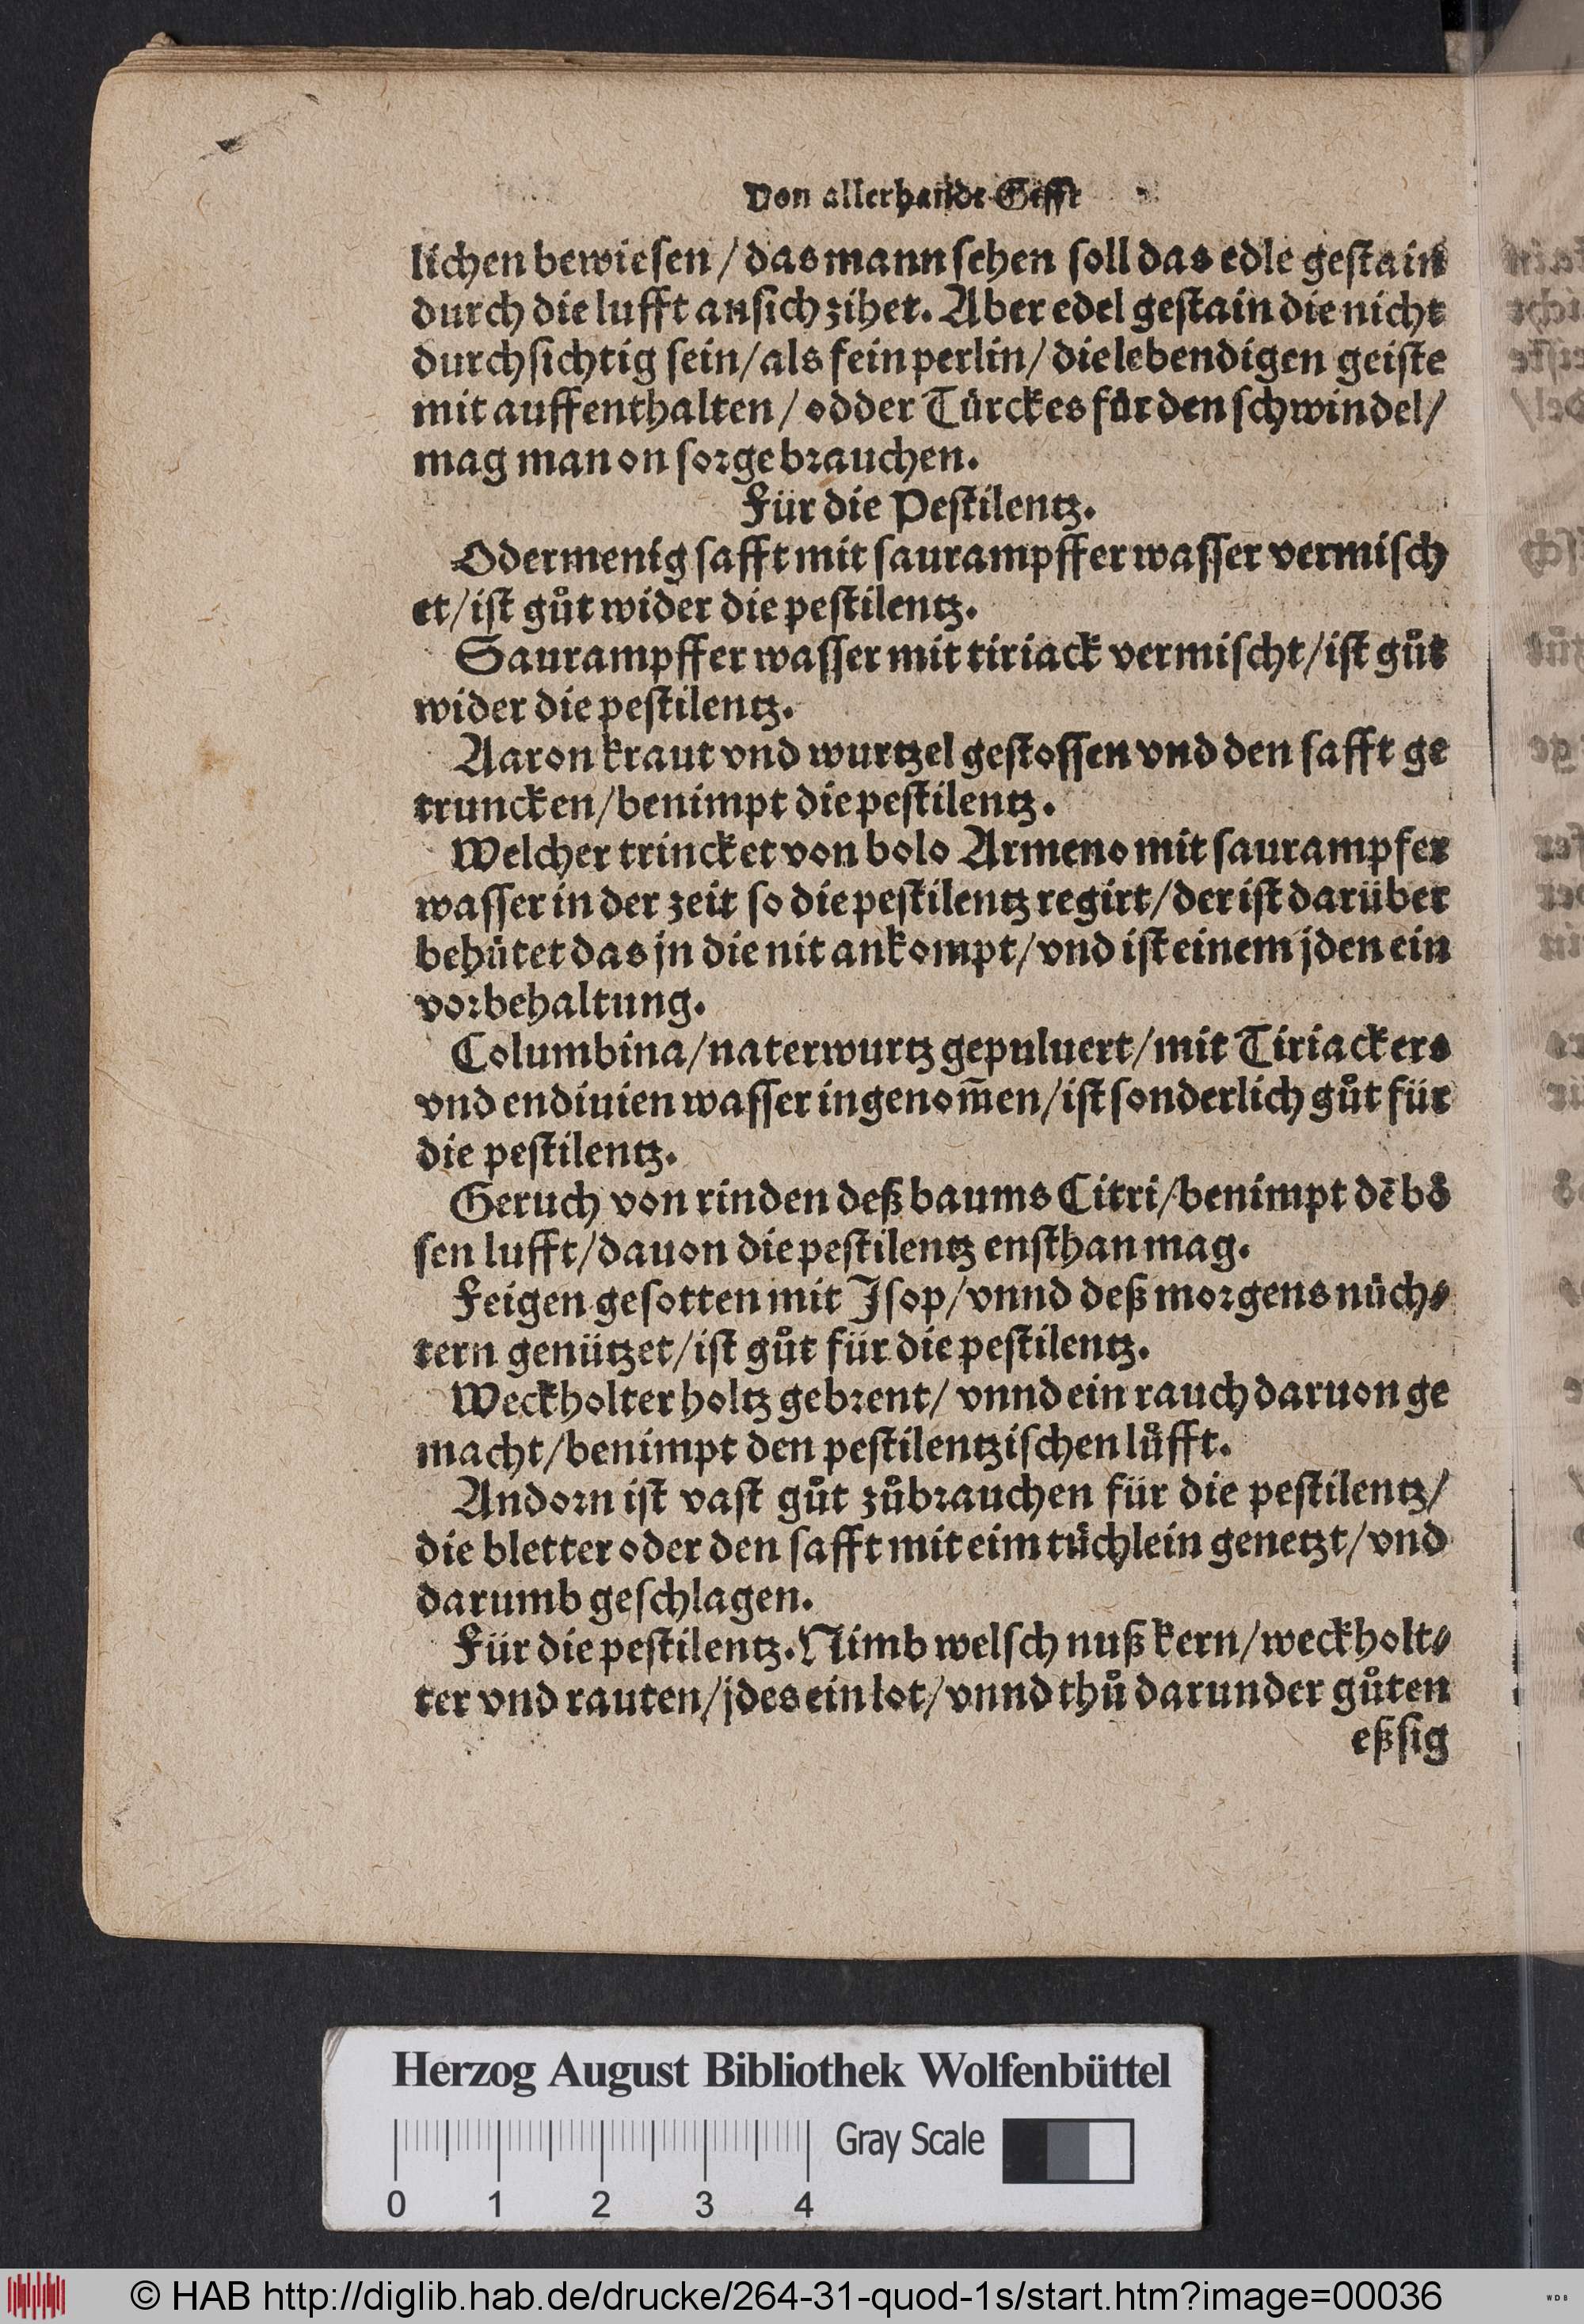 Von allerhande Gifft
lichen bewiesen / das mann sehen soll das edle gestain
durch die lufft an sich zihet. Aber edel gestain die nicht
durchsichtig sein/ als fein perlin/ die lebendigen geiste
mit auffenthalten/ odder Türckes für den schwindel/
mag man on sorge brauchen.
Für die Pestilentz.
Odermenig safft mit saurampffer wasser vermisch
et/ ist gůt wider die pestilentz.
Saurampffer wasser mit tiriack vermischt/ ist gůt
wider die pestilentz.
Aaron kraut vnd wurtzel gestossen vnd den safft ge
truncken/ benimpt die pestilentz.
Welcher trincket von bolo Armeno mit saurampfer
wasser in der zeit so die pestilentz regirt/ der ist darüber
behütet das jn die nit ankompt/ vnd ist einem jden ein
vorbehaltung.
Columbina/ naterwurtz gepuluert/ mit Tiriackers
vnd endiuien wasser ingenom̃en/ ist sonderlich gůt für
die pestilentz.
Geruch von rinden deß baums Citri/ benimpt dẽ bô
sen lufft/ dauon die pestilentz ensthan mag.
Feigen gesotten mit Isop/ vnnd deß morgens nüch⸗
tern genützet/ ist gůt für die pestilentz.
Weckholter holtz gebrent/ vnnd ein rauch daruon ge
macht/ benimpt den pestilentzischen lůfft.
Andorn ist vast gůt zůbrauchen für die pestilentz/
die bletter oder den safft mit eim tüchlein genetzt/ vnd
darumb geschlagen.
Für die pestilentz. Nimb welsch nuß kern/ weckholt⸗
ter vnd rauten/ jdes ein lot/ vnnd thů darunder gůten
eßsig
Herzog August Bibliothek Wolfenbüttel
Gray Scale
0 1 2 3 4
© HAB http://diglib.hab.de/drucke/264-31-quod-1s/start.htm?image=00036
WDB